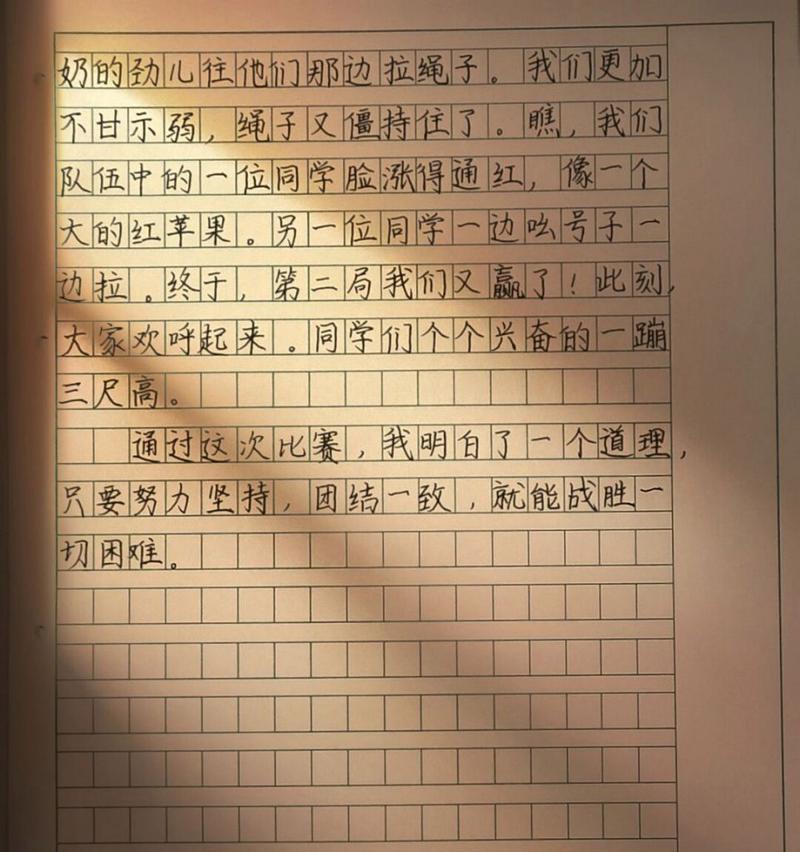 奶的劲儿往他们那边拉绳子。我们更加
不甘示弱，绳子又僵持住了。瞧，我们
队伍中的一位同学脸涨得通红，像一个
大的红苹果。另一位同学一边吆号子一
边拉。终于，第二局我们又赢了！此刻，
大家欢呼起来。同学们个个兴奋的一蹦
三尺高。
通过这次比赛，我明白了一个道理，
只要努力坚持，团结一致，就能战胜一
切困难。